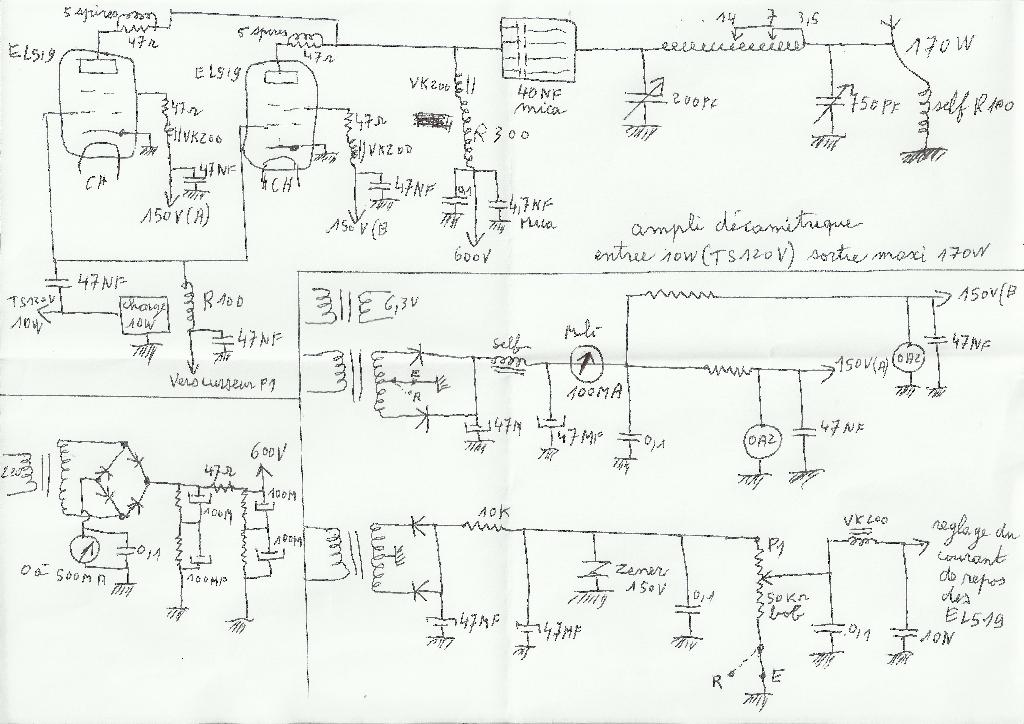 5 spires
47Ω
EL519
47Ω
VK200
47NF
CH
150V(A)
5 spires
47Ω
EL519
47Ω
VK200
47NF
CH
150V(B
VK200
R300
0,1
4,7NF
Mica
600V
40NF
mica
14 7 3,5
200PF
750PF
170W
self R100
ampli décamétrique
entrée 10W (TS120V) sortie maxi 170W
47NF
TS120V
10W
Charge
10W
R100
47NF
Vers curseur P1
6,3V
self
Multi
100MA
E
R
47M
47MF
0,1
150V(B
150V(A)
0A2
47NF
0A2
47NF
220
0 à 500MA
0,1
47Ω
600V
100M
100MF
100M
100M
10K
47MF
47MF
Zener
150V
0,1
P1
50KΩ
bob
R E
VK200
0,1
10N
reglage du
courant
de repos
des
EL519